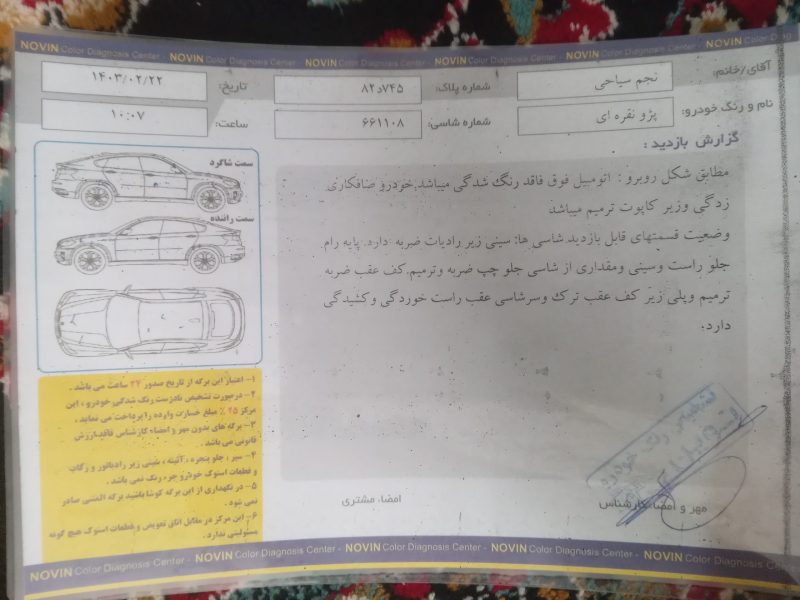 NOVIN Color Diagnosis Center - NOVIN Color Diagnosis Center - NOVIN Color Diagnosis Center - NOVIN Color Diagnosis Center - NOVIN Color Diag
آقای/خانم: نجم سیاحی
شماره پلاک: ۷۴۵د۸۲
تاریخ: ۱۴۰۳/۰۲/۲۲
نام و رنگ خودرو: پژو نقره ای
شماره شاسی: ۶۶۱۱۰۸
ساعت: ۱۰:۰۷
گزارش بازدید:
مطابق شکل روبرو : اتومبیل فوق فاقد رنگ شدگی میباشد.خودرو صافکاری
زدگی وزیر کاپوت ترمیم میباشد
وضعیت قسمتهای قابل بازدید شاسی ها: سینی زیر رادیات ضربه دارد. پایه رام
جلو راست وسینی ومقداری از شاسی جلو چپ ضربه وترمیم.کف عقب ضربه
ترمیم وپلی زیر کف عقب ترک وسرشاسی عقب راست خوردگی وکشیدگی
دارد؛
سمت شاگرد
سمت راننده
۱- اعتبار این برگه از تاریخ صدور ۲۴ ساعت می باشد .
۲- درصورت تشخیص نادرست رنگ شدگی خودرو ، این
مرکز ۲۵ ٪ مبلغ خسارت وارده را پرداخت می نماید .
۳- برگه های بدون مهر و امضاء کارشناس فاقد ارزش
قانونی می باشد .
۴- سپر ، جلو پنجره ، آئینه ، سینی زیر رادیاتور و رکاب
و قطعات استوک خودرو جزء رنگ نمی باشد .
۵- در نگهداری از این برگه کوشا باشید برگه المثنی صادر
نمی شود .
۶- این مرکز در مقابل اتاق تعویض و قطعات استوک هیچ گونه
مسئولیتی ندارد .
امضاء مشتری
مهر و امضاء کارشناس
تشخیص رنگ خودرو
NOVIN Color Diagnosis Center - NOVIN Color Diagnosis Center - NOVIN Color Diagnosis Center - NOVIN Color Diagnosis Center - NOVIN Color Diagnosis Center